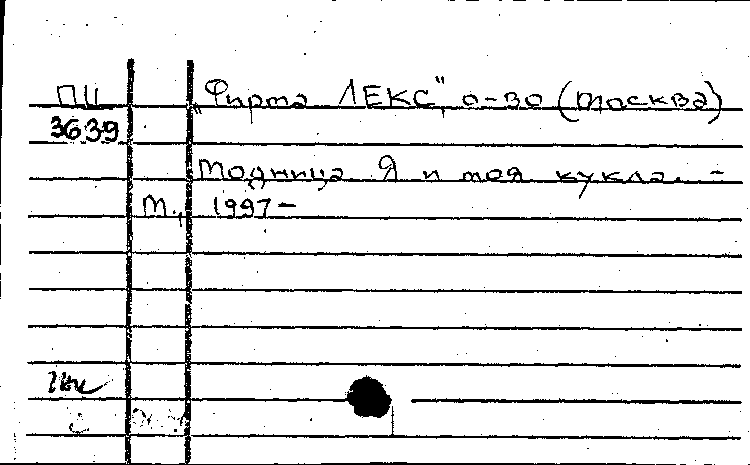 ПЦ „Фирма ЛЕКС", о-во (Москва)
3639
Модница Я и моя кукла. -
М., 1997 -